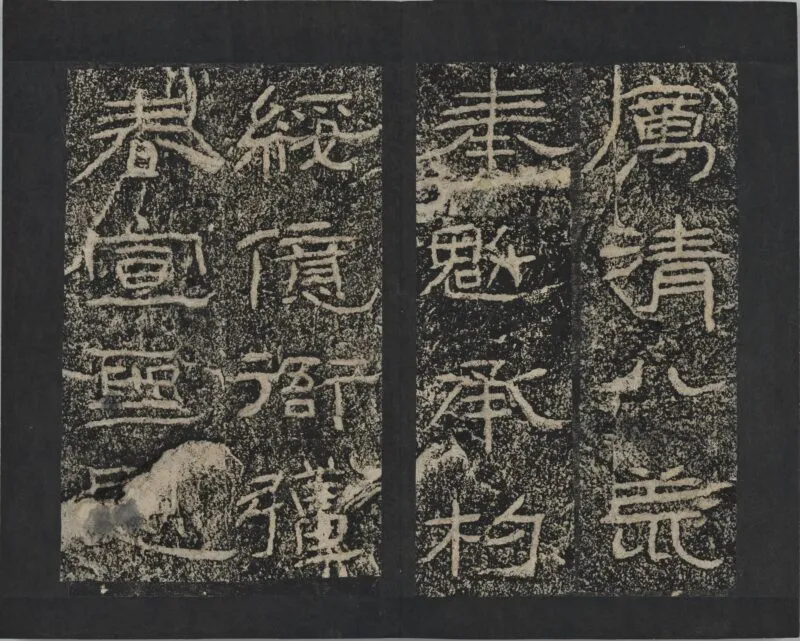 厲清八荒
奉魁承杓
綏億衙彊
春宣聖